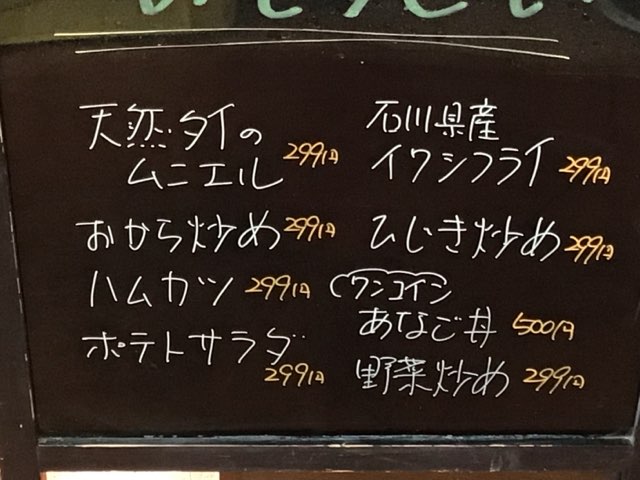 天然タイの
ムニエル 299円
おから炒め 299円
ハムカツ 299円
ポテトサラダ
299円
石川県産
イワシフライ 299円
ひじき炒め 299円
ワンコイン
あなご丼 500円
野菜炒め 299円